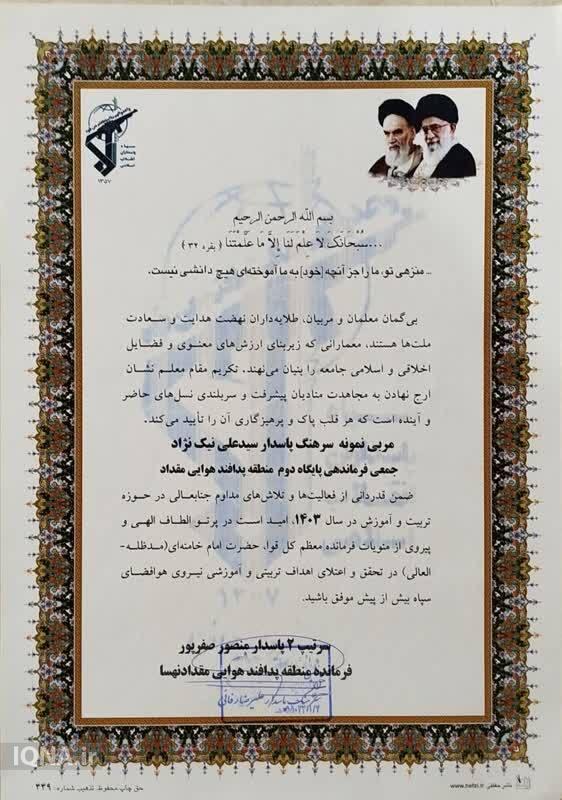 سپاه
پاسداران
انقلاب
اسلامی
۱۳۵۷
بسم الله الرحمن الرحیم
...سُبْحَانَكَ لَا عِلْمَ لَنَا إِلَّا مَا عَلَّمْتَنَا (بقره ۳۲)
... منزهی تو، ما را جز آنچه [خود] به ما آموخته‌ای هیچ دانشی نیست.
بی‌گمان معلمان و مربیان، طلایه‌داران نهضت هدایت و سعادت
ملت‌ها هستند، معمارانی که زیربنای ارزش‌های معنوی و فضایل
اخلاقی و اسلامی جامعه را بنیان می‌نهند. تکریم مقام معلم نشان
ارج نهادن به مجاهدت منادیان پیشرفت و سربلندی نسل‌های حاضر
و آینده است که هر قلب پاک و پرهیزگاری آن را تأیید می‌کند.
مربی نمونه سرهنگ پاسدار سیدعلی نیک نژاد
جمعی فرماندهی پایگاه دوم منطقه پدافند هوایی مقداد
ضمن قدردانی از فعالیت‌ها و تلاش‌های مداوم جنابعالی در حوزه
تربیت و آموزش در سال ۱۴۰۳، امید است در پرتو الطاف الهی و
پیروی از منویات فرمانده معظم کل قوا، حضرت امام خامنه‌ای(مدظله-
العالی) در تحقق و اعتلای اهداف تربیتی و آموزشی نیروی هوافضای
سپاه بیش از پیش موفق باشید.
سرتیپ ۲ پاسدار منصور صفرپور
فرمانده منطقه پدافند هوایی مقداد نهسا
IQNA.ir
حق چاپ محفوظ. تذهیب شماره: ۳۴۹
www.nefis.ir